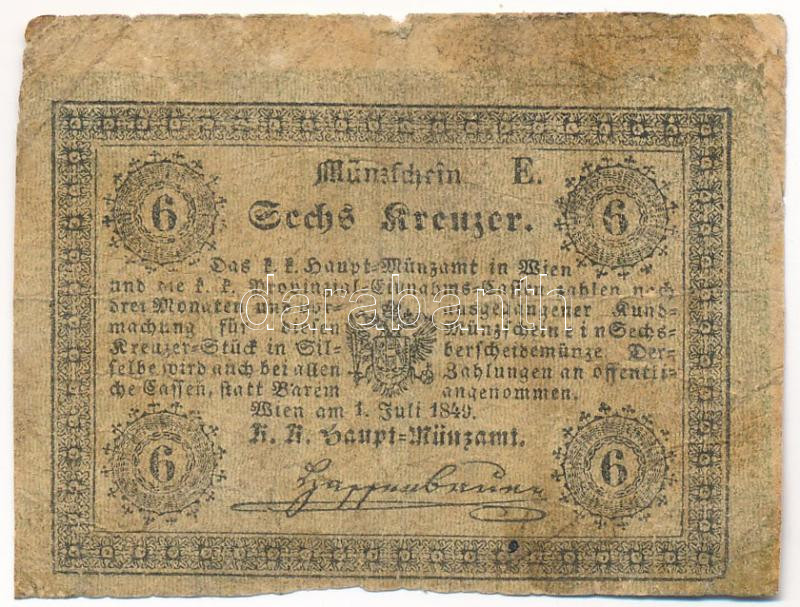 Münzschein E.
6 6
Sechs Kreuzer.
Das k. k. Haupt=Münzamt in Wien
und die k. k. Provinzial=Einnahms=Cassen zahlen nach
drei Monaten und vor= ausgegangener Kund=
machung für diesen Münzschein ein Sechs=
Kreuzer=Stück in Sil= berscheidemünze. Der=
selbe wird auch bei allen Zahlungen an öffentli=
che Cassen, statt Barem angenommen.
Wien am 1. Juli 1849.
K. K. Haupt=Münzamt.
6 6
Hassenbauer
darabanth